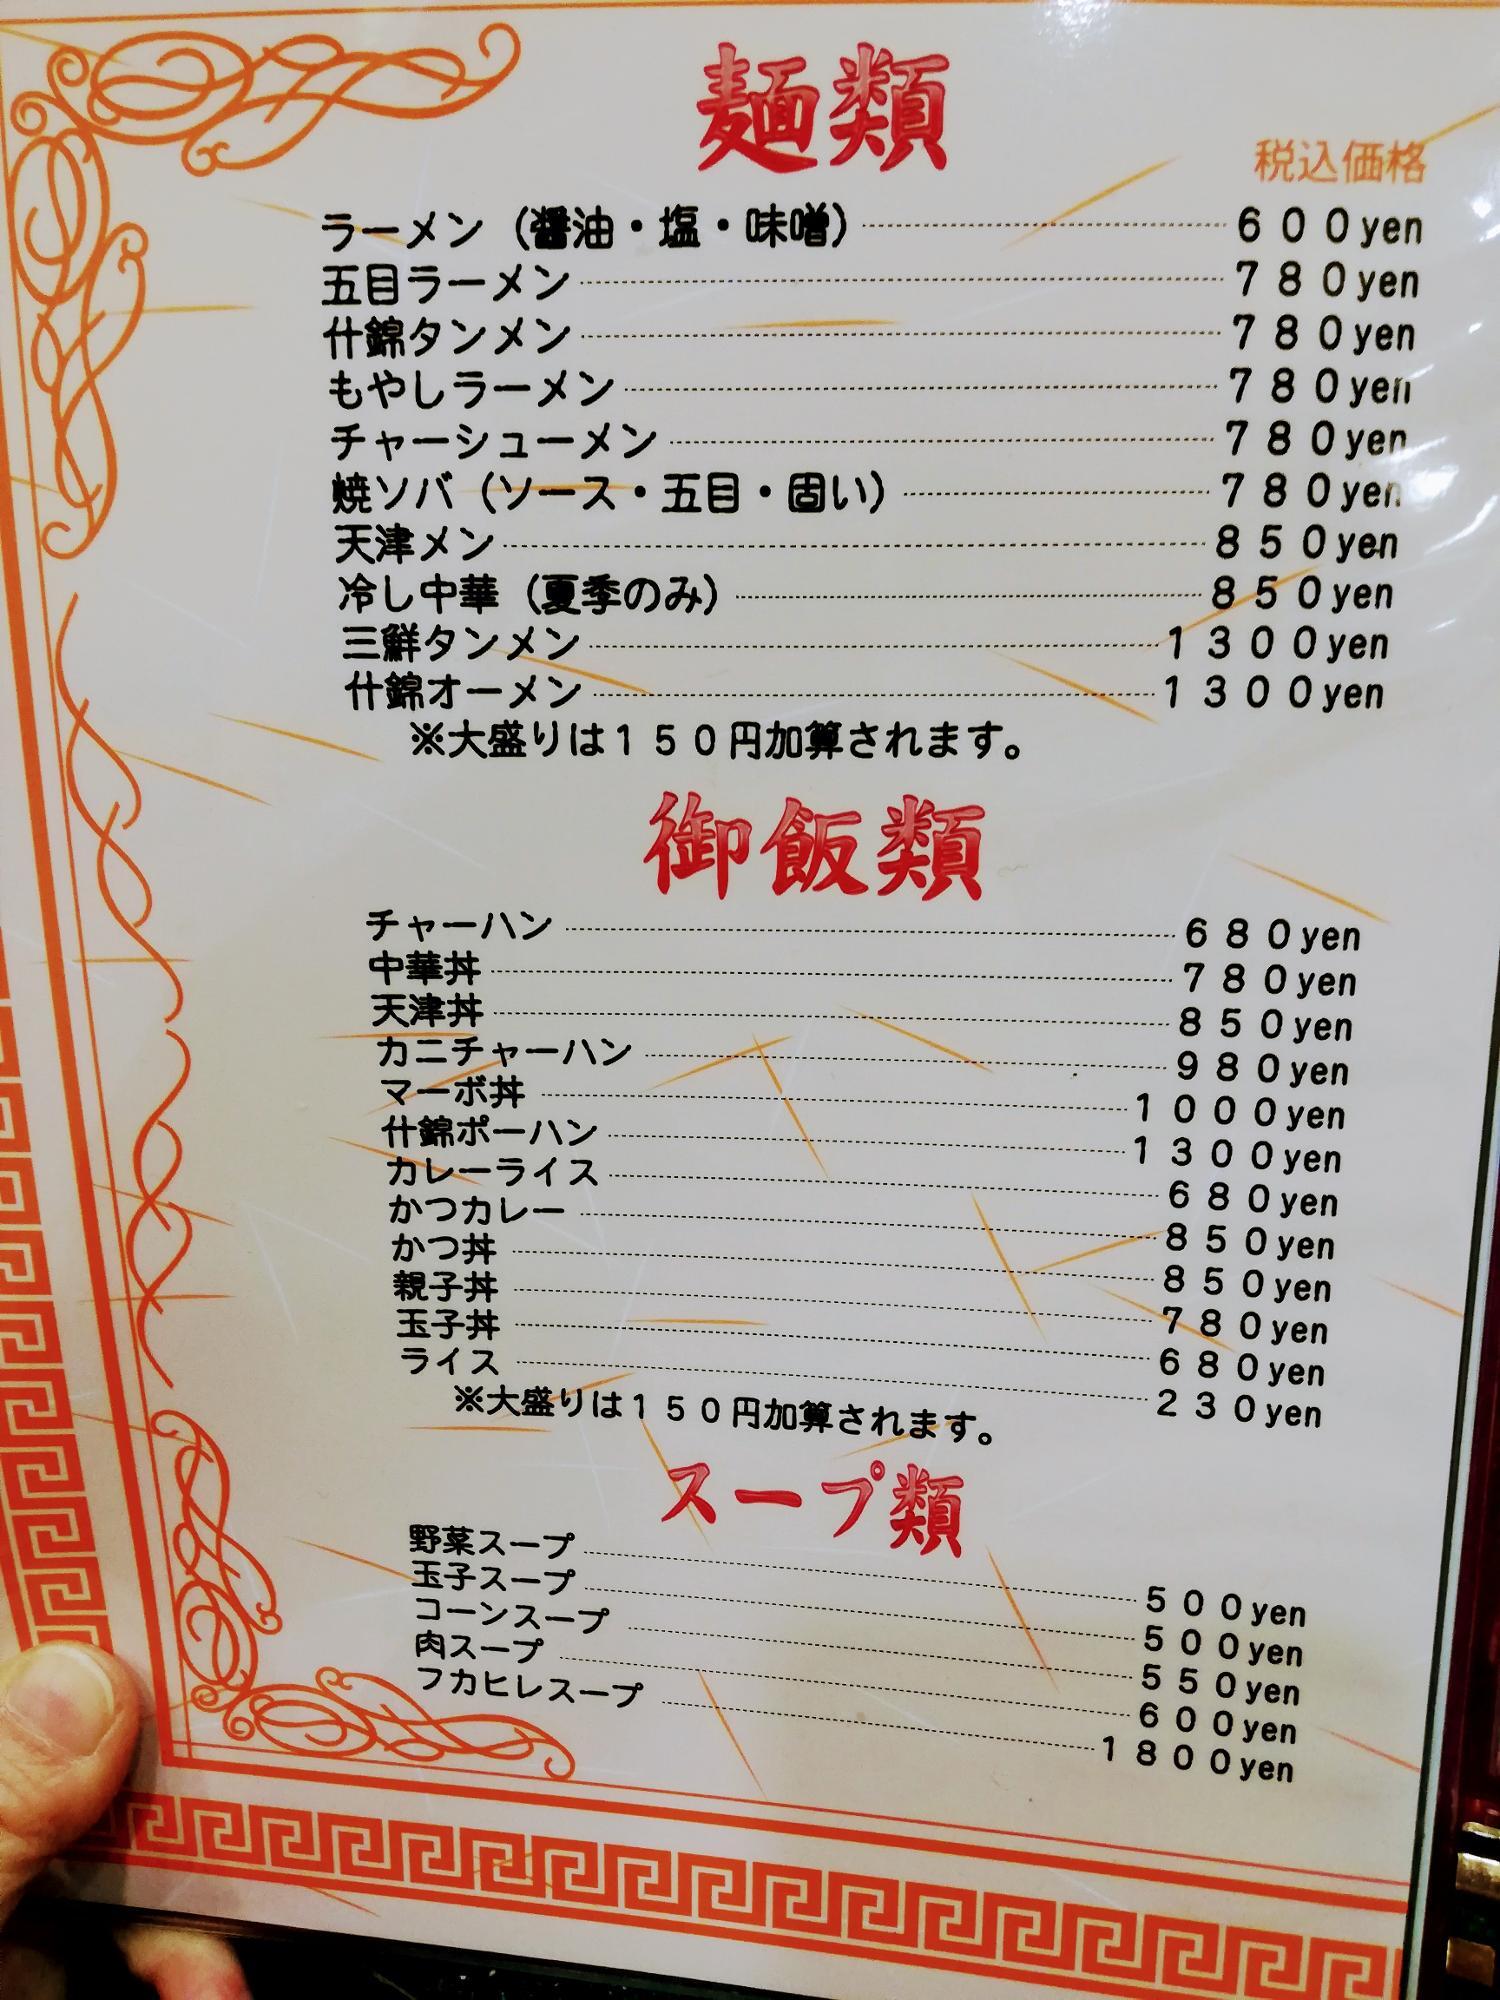 麺類
税込価格
ラーメン（醤油・塩・味噌） 600yen
五目ラーメン 780yen
什錦タンメン 780yen
もやしラーメン 780yen
チャーシューメン 780yen
焼ソバ（ソース・五目・固い） 780yen
天津メン 850yen
冷し中華（夏季のみ） 850yen
三鮮タンメン 1300yen
什錦オーメン 1300yen
※大盛りは150円加算されます。
御飯類
チャーハン 680yen
中華丼 780yen
天津丼 850yen
カニチャーハン 980yen
マーボ丼 1000yen
什錦ポーハン 1300yen
カレーライス 680yen
かつカレー 850yen
かつ丼 850yen
親子丼 780yen
玉子丼 680yen
ライス 230yen
※大盛りは150円加算されます。
スープ類
野菜スープ 500yen
玉子スープ 500yen
コーンスープ 550yen
肉スープ 600yen
フカヒレスープ 1800yen